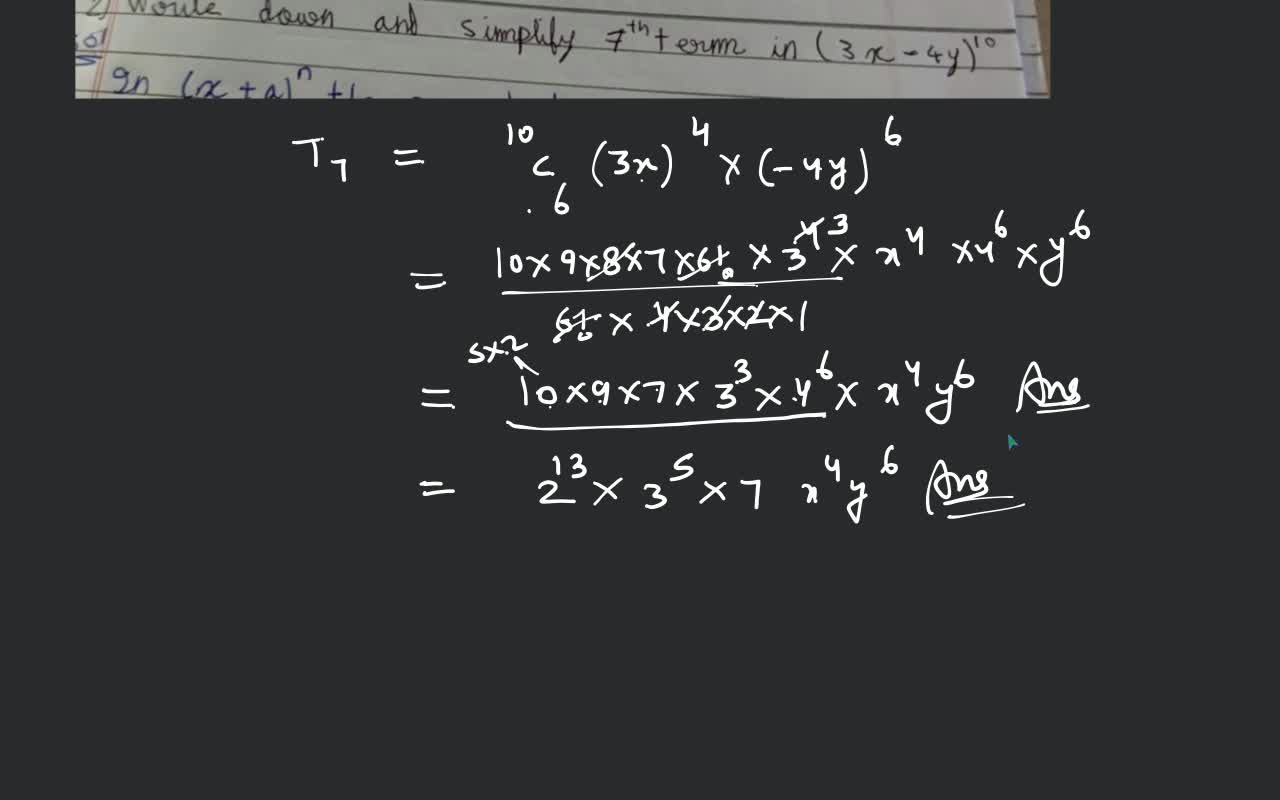 2) Write down and simplify 7th term in (3x-4y)^10
Sol
In (x+a)^n
T7 = 10C6 (3x)^4 × (-4y)^6
= 10×9×8×7×6! × 3^4 3 × x^4 × 4^6 × y^6
6! × 4×3×2×1
5×2
= 10×9×7× 3^3 × 4^6 × x^4 y^6 Ans
= 2^13 × 3^5 × 7 x^4 y^6 Ans